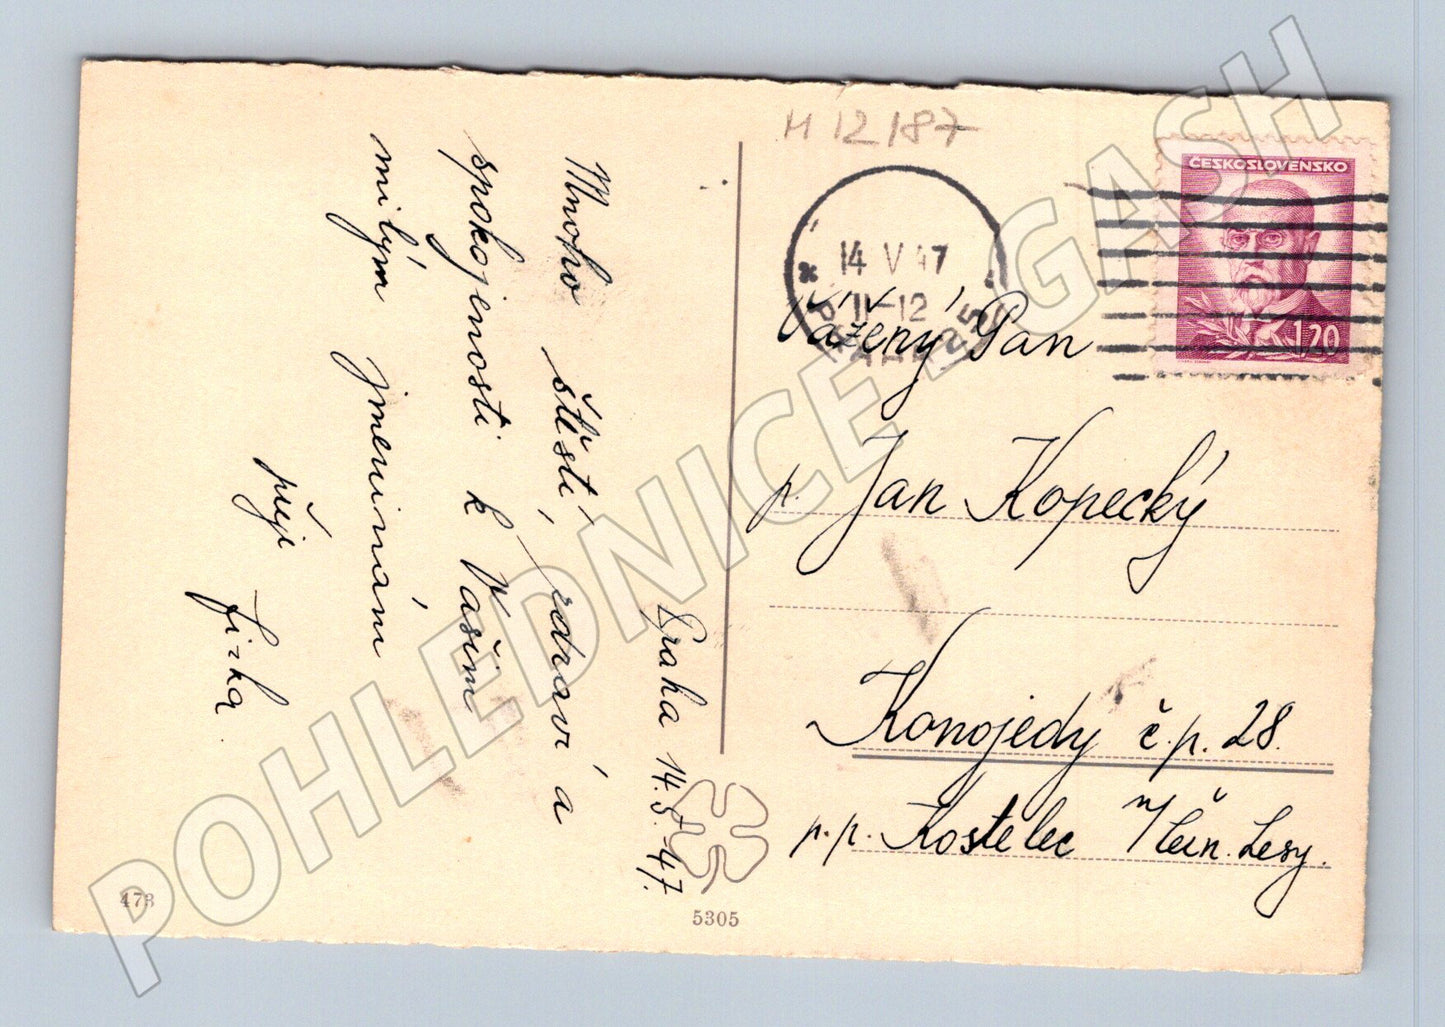 Praha 14.5.47.
Mnoho štěstí, zdraví a
spokojenosti k Vašim
milým jmeninám
přeje
Jirka.
M 12/87
14 V 47
11-12
PRAHA 25
ČESKOSLOVENSKO
1'20
Vážený Pán
p. Jan Kopecký
Konojedy č.p. 28.
p.p. Kostelec n/Čern. Lesy.
478
5305
POHLEDNICE - GASH